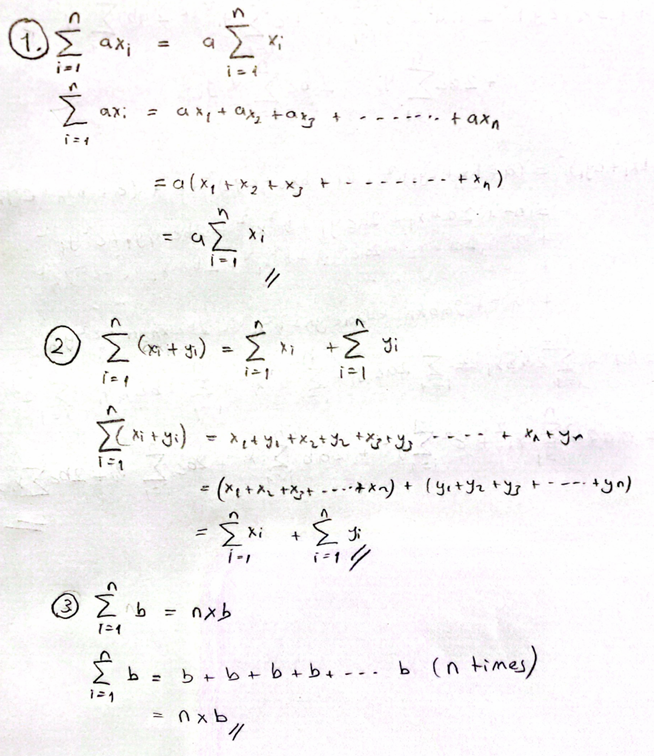 1. ∑_{i=1}^{n} ax_i = a ∑_{i=1}^{n} x_i
∑_{i=1}^{n} ax_i = ax_1 + ax_2 + ax_3 + ------- + ax_n
= a(x_1 + x_2 + x_3 + -------- + x_n)
= a ∑_{i=1}^{n} x_i //
2. ∑_{i=1}^{n} (x_i + y_i) = ∑_{i=1}^{n} x_i + ∑_{i=1}^{n} y_i
∑_{i=1}^{n} (x_i + y_i) = x_1 + y_1 + x_2 + y_2 + x_3 + y_3 ------ + x_n + y_n
= (x_1 + x_2 + x_3 + ----- + x_n) + (y_1 + y_2 + y_3 + ----- + y_n)
= ∑_{i=1}^{n} x_i + ∑_{i=1}^{n} y_i //
3 ∑_{i=1}^{n} b = n×b
∑_{i=1}^{n} b = b + b + b + b + --- b (n times)
= n×b //